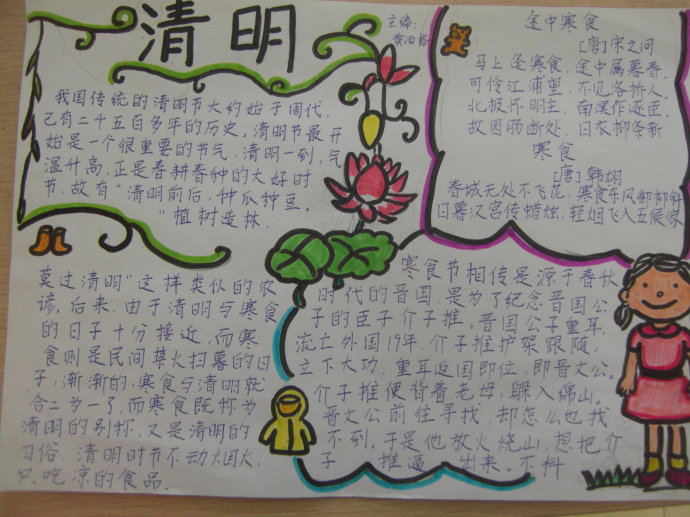 清明
主编：
我国传统的清明节大约始于周代，
己有二千五百多年的历史。清明节最开
始是一个很重要的节气，清明一到，气
温升高，正是春耕春种的大好时
节，故有“清明前后，种瓜种豆。
“植树造林，
莫过清明”这样类似的农
谚。后来，由于清明与寒食
的日子十分接近，而寒
食则是民间禁火扫墓的日
子，渐渐的，寒食与清明就
合二为一了，而寒食既称为
清明的别称，又是清明的
习俗，清明时节不动烟火，
只吃凉的食品。
途中寒食
[唐]宋之问
马上逢寒食，途中属暮春，
可怜江浦望，不见洛桥人，
北极怀明主，南溟作逐臣，
故园肠断处，日衣柳条新
寒食
[唐]韩翃
春城无处不飞花，寒食东风御柳斜
日暮汉宫传蜡烛，轻烟飞入五候家
寒食节相传是源于春秋
时代的晋国，是为了纪念晋国公
子的臣子介子推。晋国公子重耳，
流亡外国19年，介子推护驾跟随
立下大功，重耳返国即位，即晋文公。
介子推便背着老母，躲入绵山。
晋文公前往寻找，却怎么也找
不到，于是他放火烧山，想把介
子推逼出来。不料